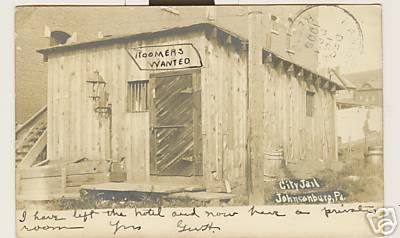 ROOMERS
WANTED
City Jail
Johnsonburg, Pa.
I have left the hotel and now have a private
room Yrs Gust.
ebY